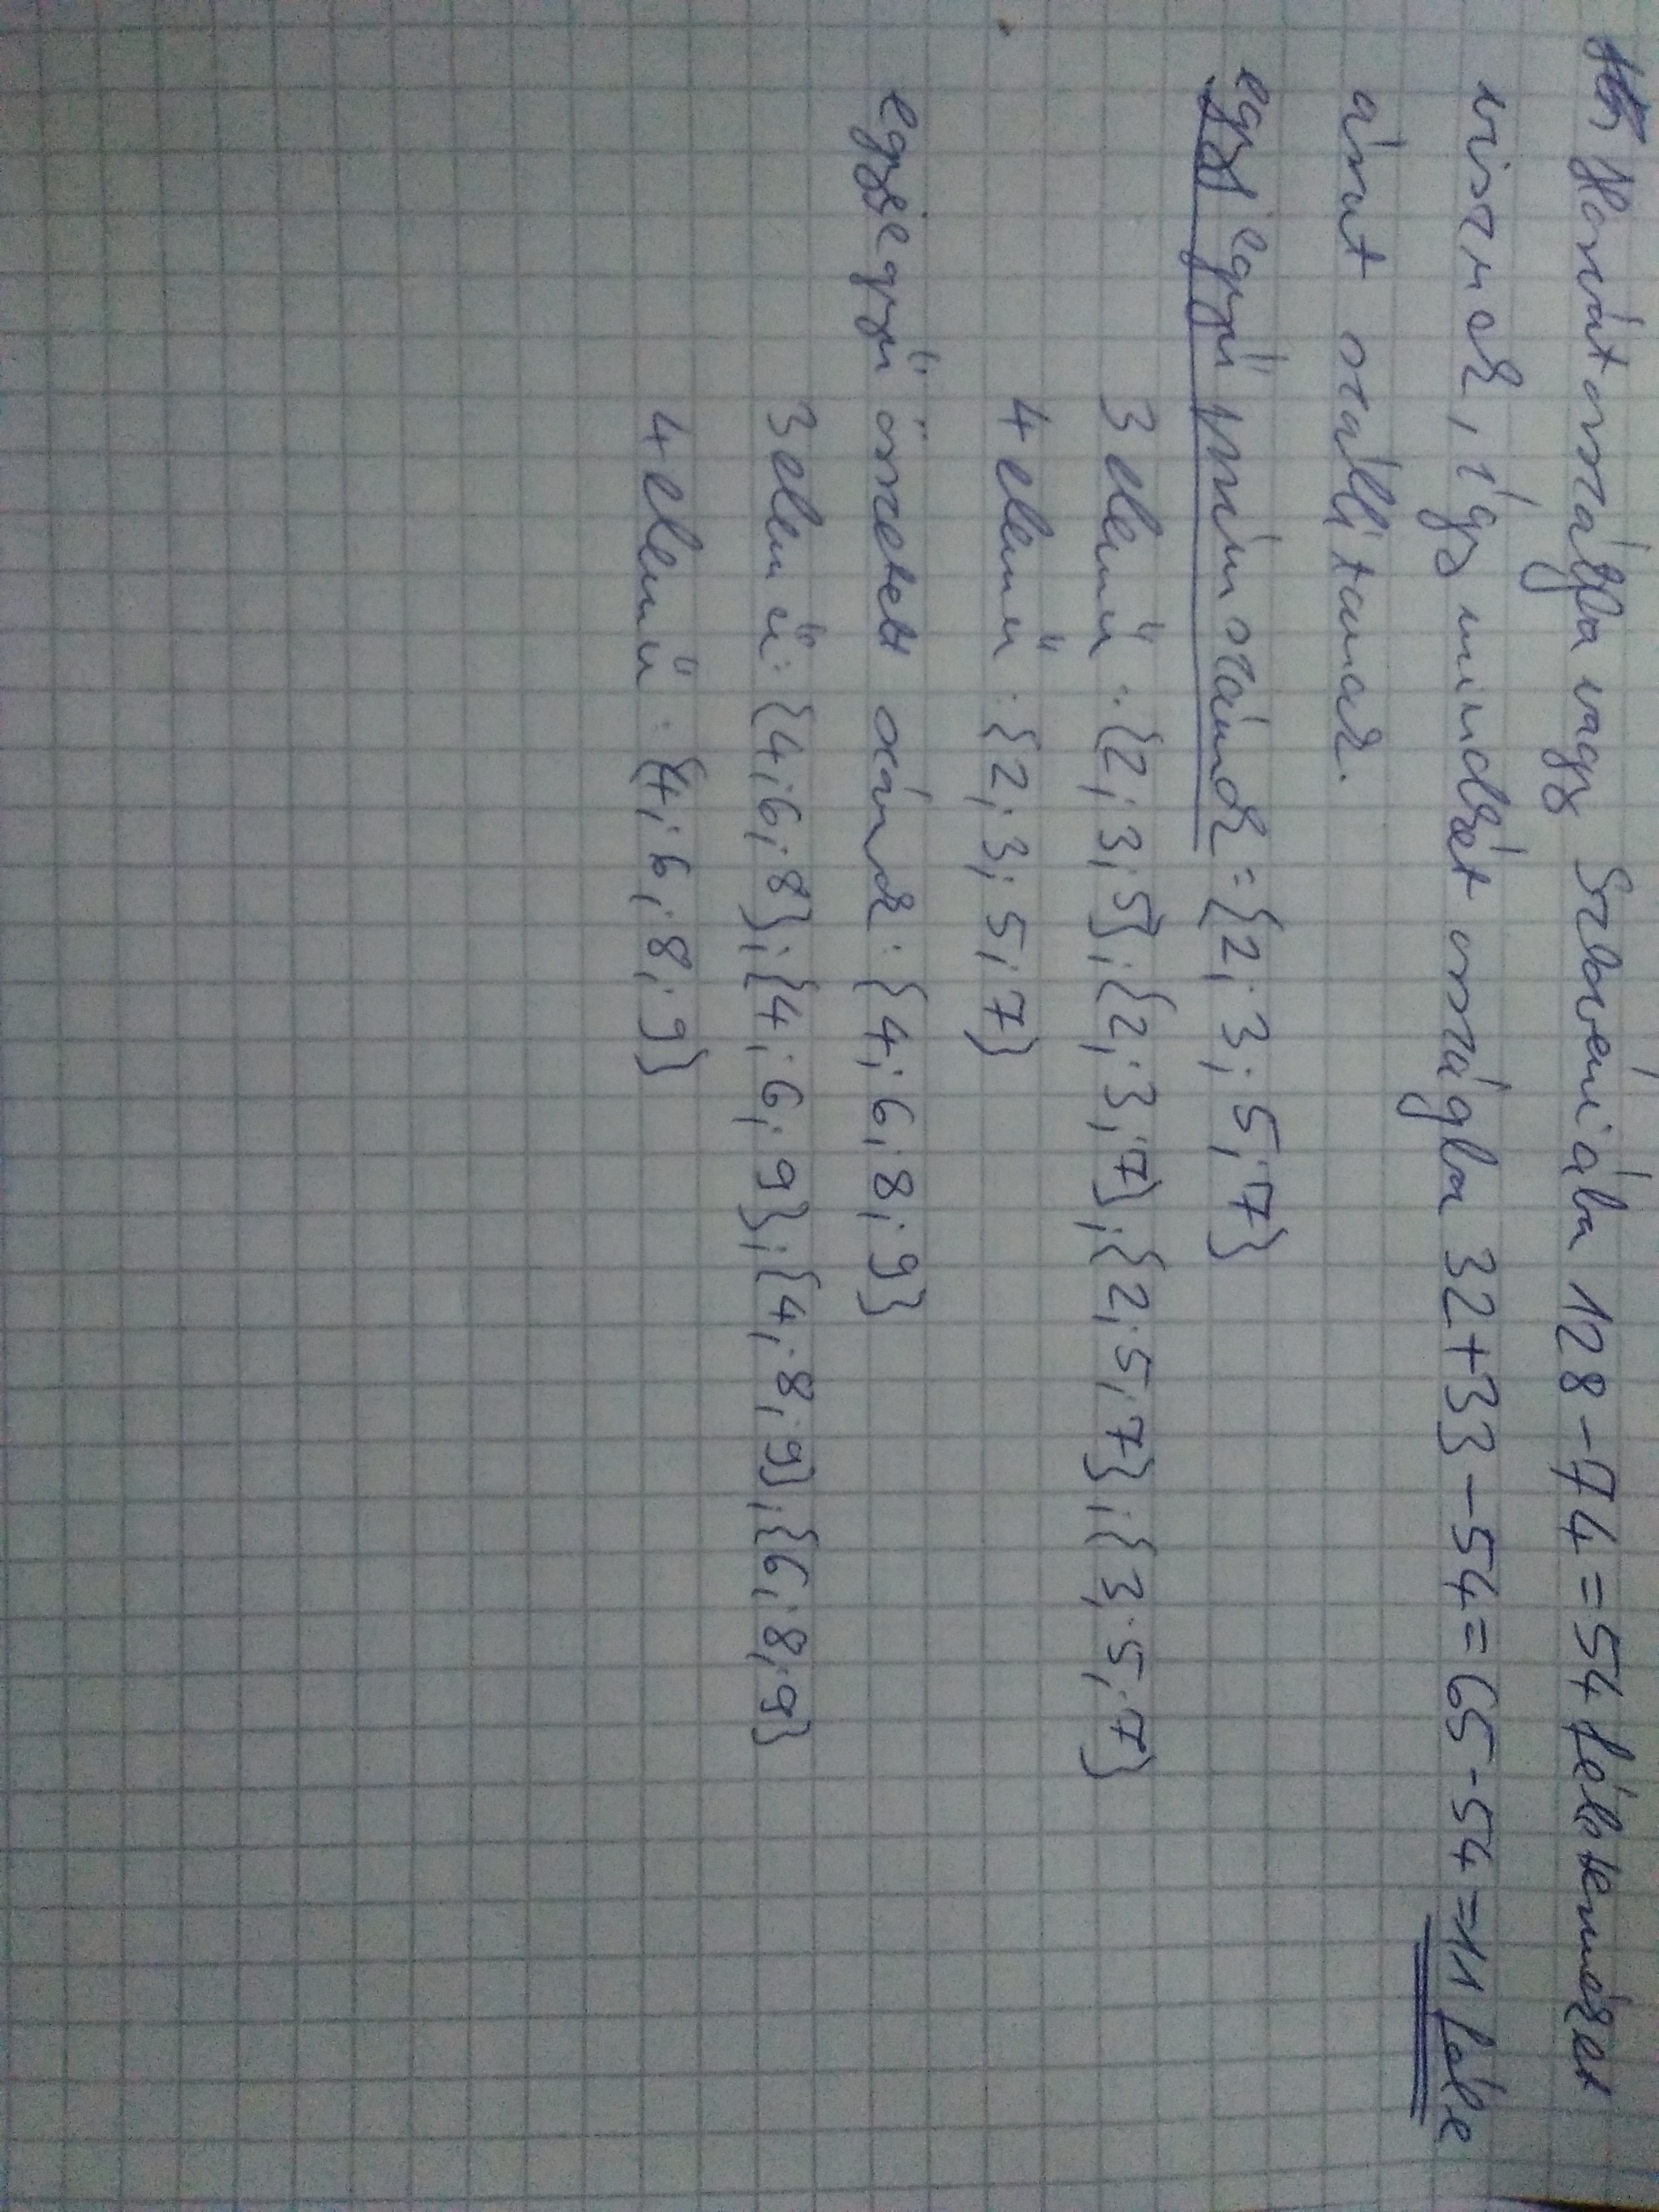 Horvátországba vagy Szlovéniába 128-74=54 féle terméket
visznek, így mindkét országba 32+33-54=65-54=11 féle
árut szállítanak.
egyjegyű prímszámok={2;3;5;7}
3 elemű:{2;3;5};{2;3;7};{2;5;7};{3;5;7}
4 elemű:{2;3;5;7}
egyjegyű összetett számok:{4;6;8;9}
3 elemű:{4;6;8};{4;6;9};{4;8;9};{6;8;9}
4 elemű:{4;6;8;9}